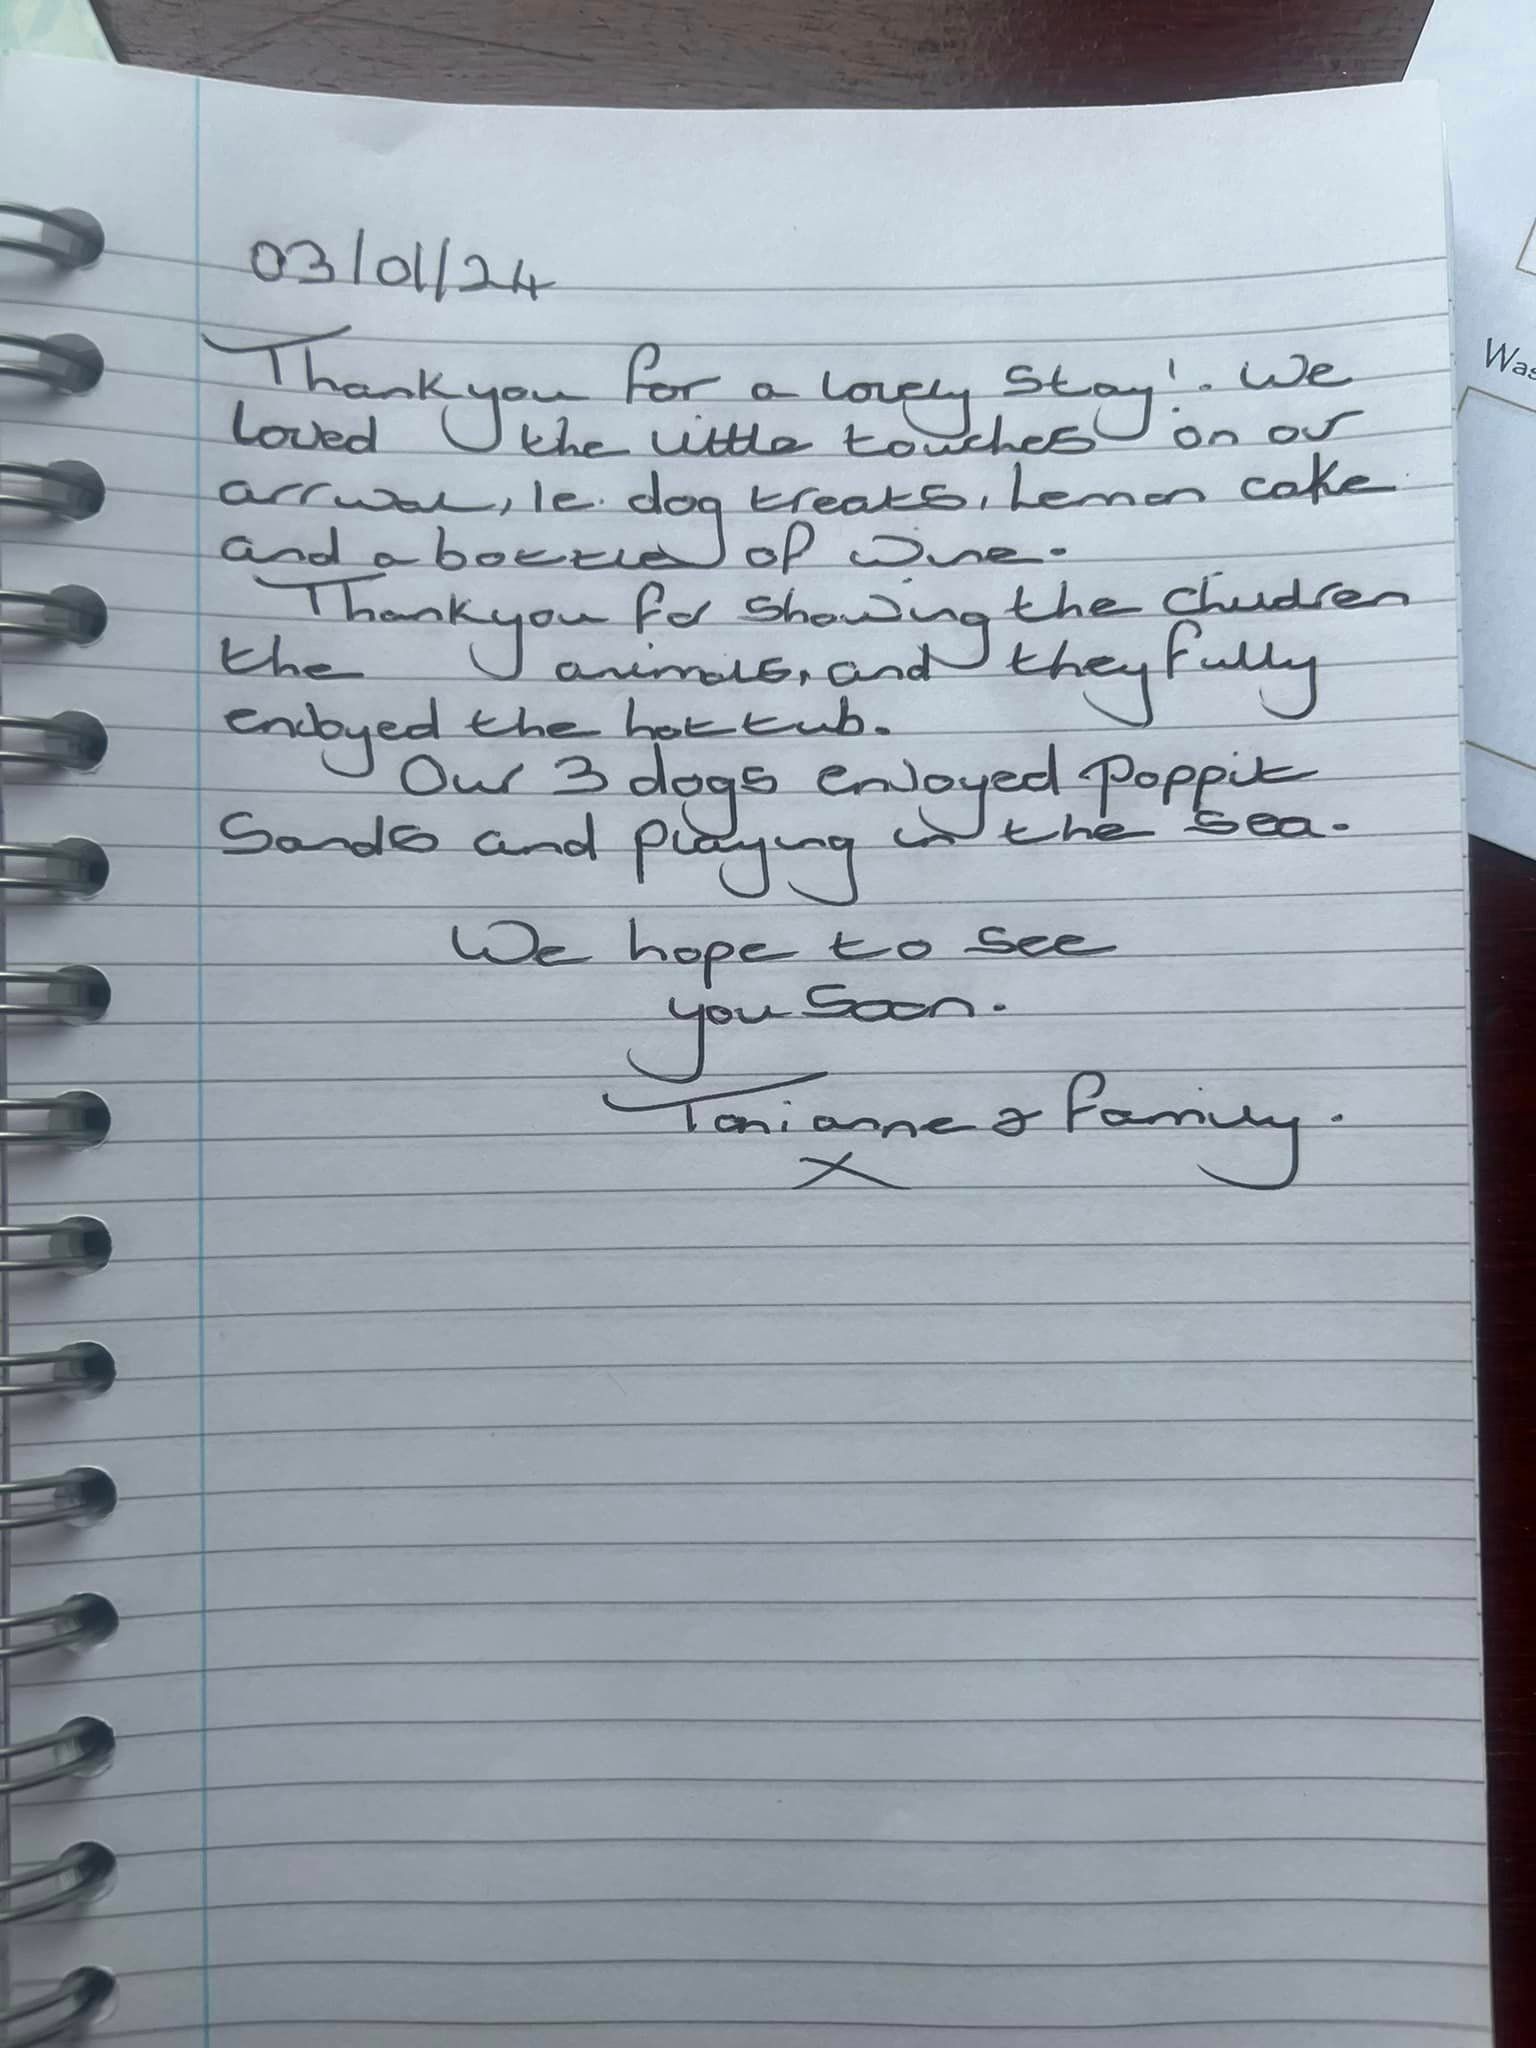 03/01/24
Thank you for a lovely stay!. We
loved the little touches on our
arrival, ie. dog treats, Lemon cake
and a bottle of wine.
Thank you for showing the children
the animals, and they fully
enjoyed the hot tub.
Our 3 dogs enjoyed Poppit
Sands and playing in the sea.
We hope to see
you soon.
Tonianne & family.
X
Was